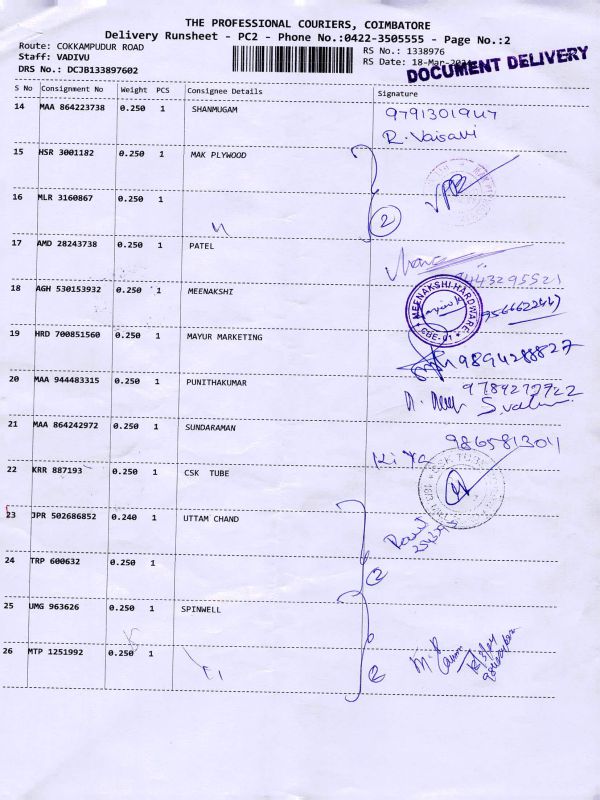 THE PROFESSIONAL COURIERS, COIMBATORE
Delivery Runsheet - PC2 - Phone No.:0422-3505555 - Page No.:2
Route: COKKAMPUDUR ROAD
Staff: VADIVU
DRS No.: DCJB133897602
RS No.: 1338976
RS Date: 18-Mar-
DOCUMENT DELIVERY
S No Consignment No Weight PCS Consignee Details Signature
14 MAA 864223738 0.250 1 SHANMUGAM 9791301947
R. Vaisavi
15 HSR 3001182 0.250 1 MAK PLYWOOD
16 MLR 3160867 0.250 1 2
17 AMD 28243738 0.250 1 PATEL
9443295521
18 AGH 530153932 0.250 1 MEENAKSHI MEENAKSHI HARDWARE CBE-01
19 HRD 700851560 0.250 1 MAYUR MARKETING 9894288827
20 MAA 944483315 0.250 1 PUNITHAKUMAR 9789277922
21 MAA 864242972 0.250 1 SUNDARAMAN 9865813011
22 KRR 887193 0.250 1 CSK TUBE
23 JPR 502686852 0.240 1 UTTAM CHAND
24 TRP 600632 0.250 1 2
25 UMG 963626 0.250 1 SPINWELL
26 MTP 1251992 0.250 1 2